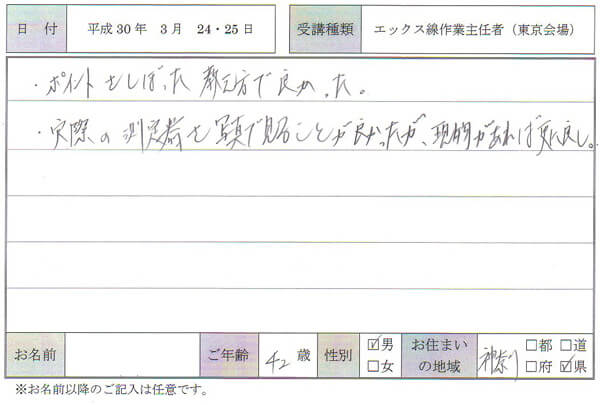 日 付 平成30年 3月 24・25日 受講種類 エックス線作業主任者（東京会場）
・ポイントをしぼった 教え方で良かった。
・実際の測定器を写真で見ることが良かったが、現物があれば更に良し。
お名前 ご年齢 42 歳 性別 ☑男 □女 お住まいの地域 神奈川 □都 □道 □府 ☑県
※お名前以降のご記入は任意です。